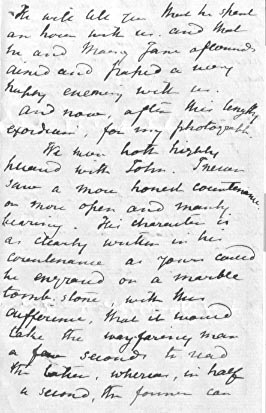 He will tell you that he spent
an hour with us. and that
he and Mary Jane afterwards
dined and passed a very
happy evening with us.
And now, after this lengthy
exordium, for my photograph
We were both highly
pleased with John. I never
saw a more honest countenance
or more open and manly
bearing. His character is
as clearly written in his
countenance as yours could
be engraved on a marble
tomb-stone, with this
difference, that it would
take the wayfaring man
a few seconds to read
the latter, whereas, in half
a second, the former can